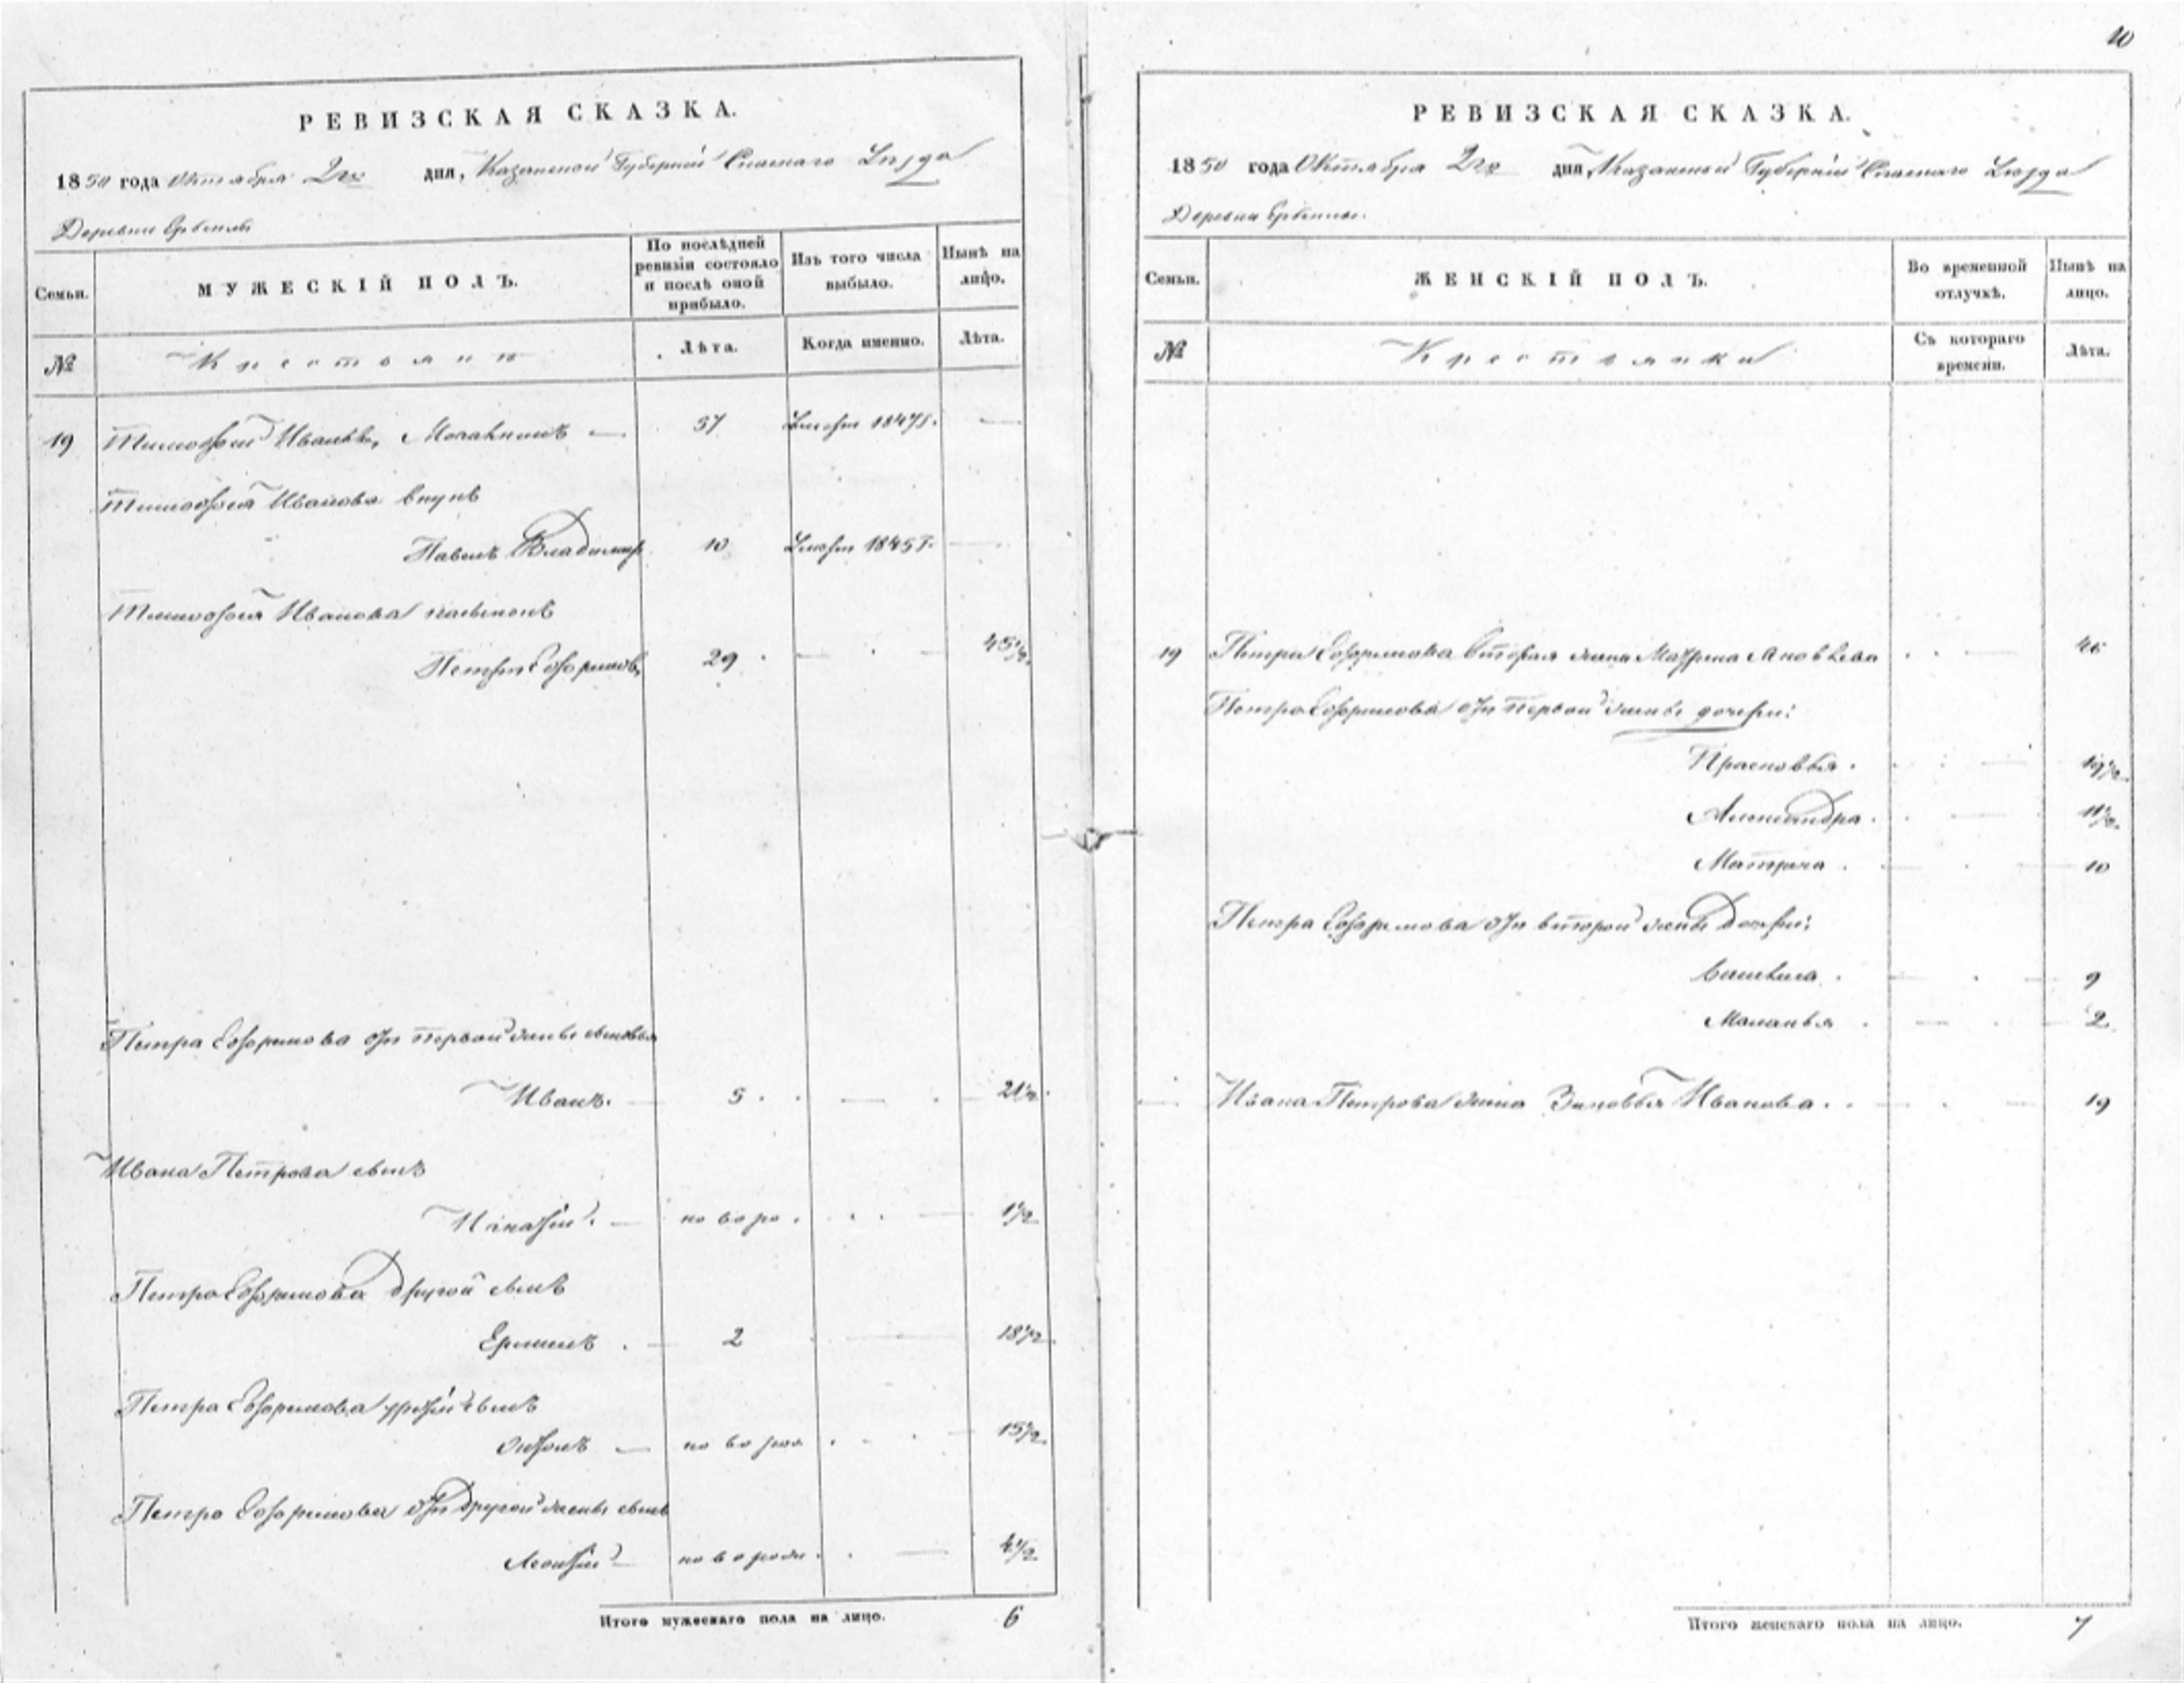 10
РЕВИЗСКАЯ СКАЗКА.
1850 года Октября дня, Казанской Губерніи Спаскаго Уезда
Деревни
Семьи.
МУЖЕСКІЙ ПОЛЪ.
По послѣдней ревизіи состояло и послѣ оной прибыло.
Изъ того числа выбыло.
Нынѣ на лицо.
№
Крестьяне
Лѣта.
Когда именно.
Лѣта.
19 Тимофей Ивановъ 57 1847 г.
Тимофея Иванова внукъ
Павелъ Владимир 10 1845 г.
Тимофея Иванова пасынокъ
Петръ Ефремовъ 29 45 1/2
Петра Ефремова отъ первой жены сыновья
Иванъ. 5 21 1/2
Ивана Петрова сынъ
новоро. 1 1/2
Петра Ефремова другой сынъ
Ермилъ 2 18 1/2
Петра Ефремова третій сынъ
новорож 15 1/2
Петра Ефремова отъ другой жены сынъ
Леонтій новорож. 4 1/2
Итого мужескаго пола на лицо. 6
РЕВИЗСКАЯ СКАЗКА.
1850 года Октября дня, Казанской Губерніи Спаскаго Уезда
Деревни
Семьи.
ЖЕНСКІЙ ПОЛЪ.
Во временной отлучкѣ.
Нынѣ на лицо.
№
Крестьянки
Съ котораго времени.
Лѣта.
19 Петра Ефремова вторая жена 46
Петра Ефремова отъ первой жены дочери:
Прасковья. 19 1/2
Александра. 11 1/2
Матрена. 10
Петра Ефремова отъ второй жены дочери:
9
Маланья 2
Ивана Петрова жена Зиновья Иванова. 19
Итого женскаго пола на лицо. 7